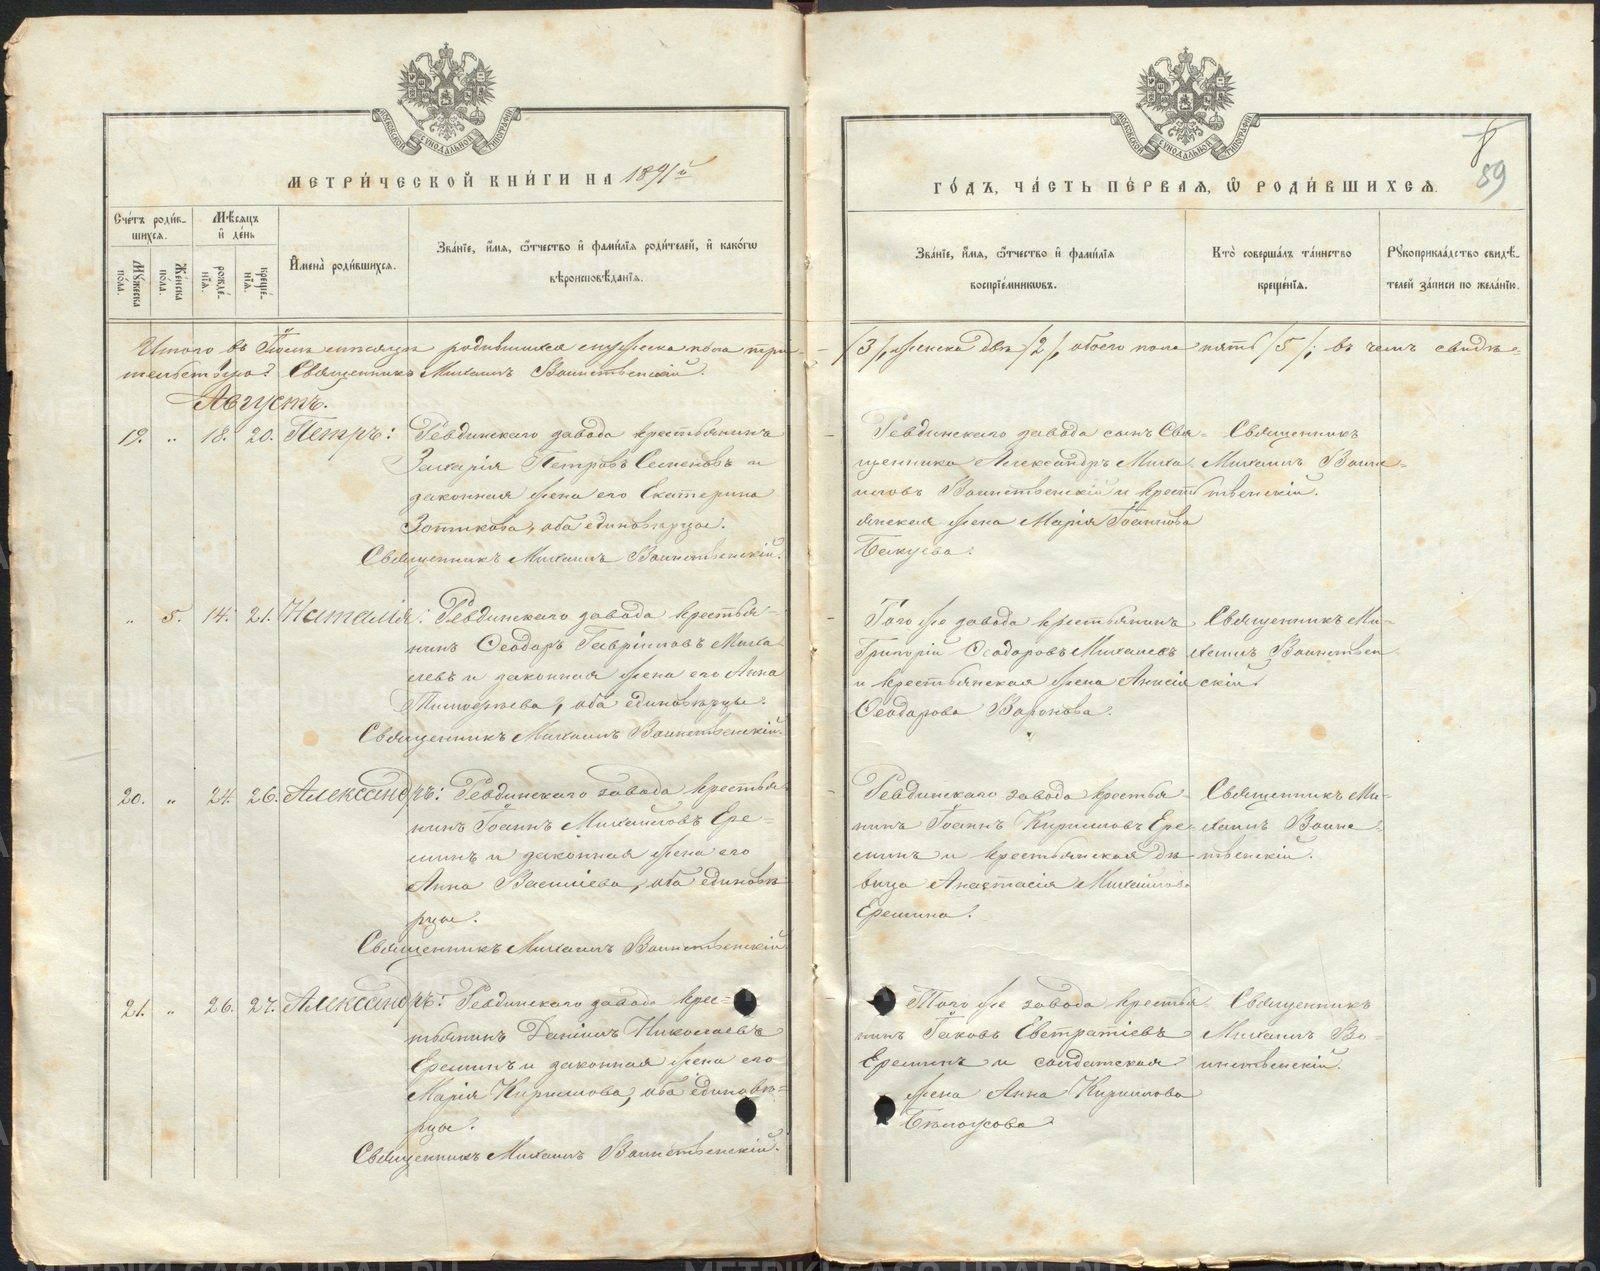 МОСКОВСКОЙ СѴНОДАЛЬНОЙ ТИПОГРАФІИ
МЕТРИ́ЧЕСКОЙ КНИ́ГИ НА 1891й
Сче́тъ роди́вшихся.
Мꙋ́жеска по́ла.
Же́нска по́ла.
Мѣ́сяцъ и҆ де́нь
рожде́нїя.
креще́нїя.
И҆мена̀ роди́вшихся.
Зва́нїе, и҆́мя, ѻ҆́тчество и҆ фами́лїя роди́телей, и҆ како́гѡ
вѣроисповѣ́данїя.
Итого въ Іюлѣ мѣсяцѣ родившихся мужеска пола три
тельствую? Священникъ Михаилъ Воинственскій.
Августъ.
19. „ 18. 20. Петръ: Ревдинскаго завода крестьянинъ
Захарія Петровъ Семеновъ и
законная жена его Екатерина
Зотикова, оба единовѣрцы.
Священникъ Михаилъ Воинственскій.
„ 5. 14. 21. Наталія: Ревдинскаго завода крестья-
нинъ Ѳеодоръ Гавріиловъ Миха-
левъ и законная жена его Анна
Тимоѳеева, оба единовѣрцы.
Священникъ Михаилъ Воинственскій.
20. „ 24. 26. Александръ: Ревдинскаго завода крестья-
нинъ Іоаннъ Михаиловъ Ере-
минъ и законная жена его
Анна Василіева, оба единовѣ-
рцы.
Священникъ Михаилъ Воинственскій
21. „ 26. 27. Александръ: Ревдинскаго завода крес-
тьянинъ Даніилъ Николаевъ
Ереминъ и законная жена его
Марія Кириллова, оба единовѣ-
рцы.
Священникъ Михаилъ Воинственскій.
МОСКОВСКОЙ СѴНОДАЛЬНОЙ ТИПОГРАФІИ
59
ГО́ДЪ, ЧА́СТЬ ПЕ́РВАЯ, Ѽ РОДИ́ВШИХСЯ.
Зва́нїе, и҆́мя, ѻ҆́тчество и҆ фами́лїя
воспрїе́мникѡвъ.
Кто̀ соверша́лъ та́инство
креще́нїя.
Рꙋкоприкла́дство свидѣ́-
телей за́писи по жела́нїю.
/3/, женска двѣ /2/, обоего пола пять /5/; въ чемъ свидѣ-
Ревдинскаго завода сынъ Свя-
щенника Александръ Миха-
иловъ Воинственскій и кресть-
янская жена Марія Іоаннова
Священникъ
Михаилъ Воин-
ственскій.
Того же завода крестьянинъ
Григорій Ѳеодоровъ Михалевъ
и крестьянская жена Анисія
Ѳеодорова Воронова.
Священникъ Ми-
хаилъ Воинствен-
скій.
Ревдинскаго завода крестья-
нинъ Іоаннъ Кирилловъ Ере-
минъ и крестьянская дѣ-
вица Анастасія Михаилова
Еремина.
Священникъ Ми-
хаилъ Воинс-
твенскій.
Того же завода крестья-
нинъ Іаковъ Евстратіевъ
Ереминъ и солдатская
жена Анна Кириллова
Бѣлоусова
Священникъ
Михаилъ Во-
инственскій.